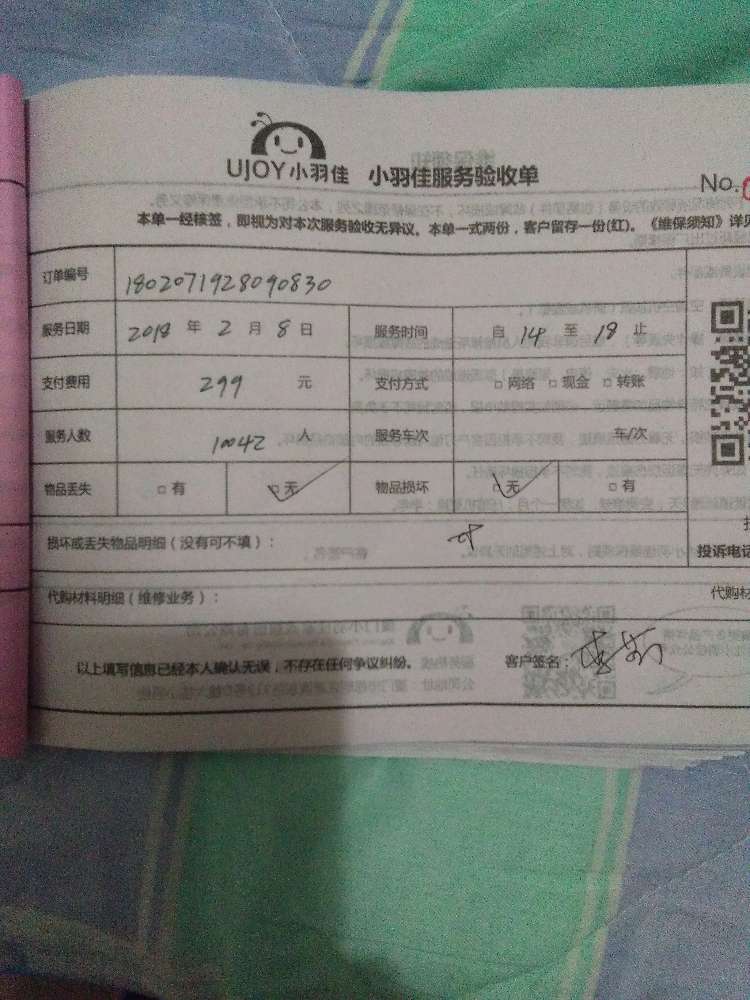 UJOY小羽佳 小羽佳服务验收单
No.
本单一经核签，即视为对本次服务验收无异议。本单一式两份，客户留存一份(红)。《维保须知》详见
订单编号 1802071928090830
服务日期 2018 年 2 月 8 日 服务时间 自 14 至 18 止
支付费用 299 元 支付方式 □网络 □现金 □转账
服务人数 10042 人 服务车次 车/次
物品丢失 □有 □无 物品损坏 □无 □有
损坏或丢失物品明细（没有可不填）：
投诉电话
代购材料明细（维修业务）： 代购材
以上填写信息已经本人确认无误，不存在任何争议纠纷。 客户签名：